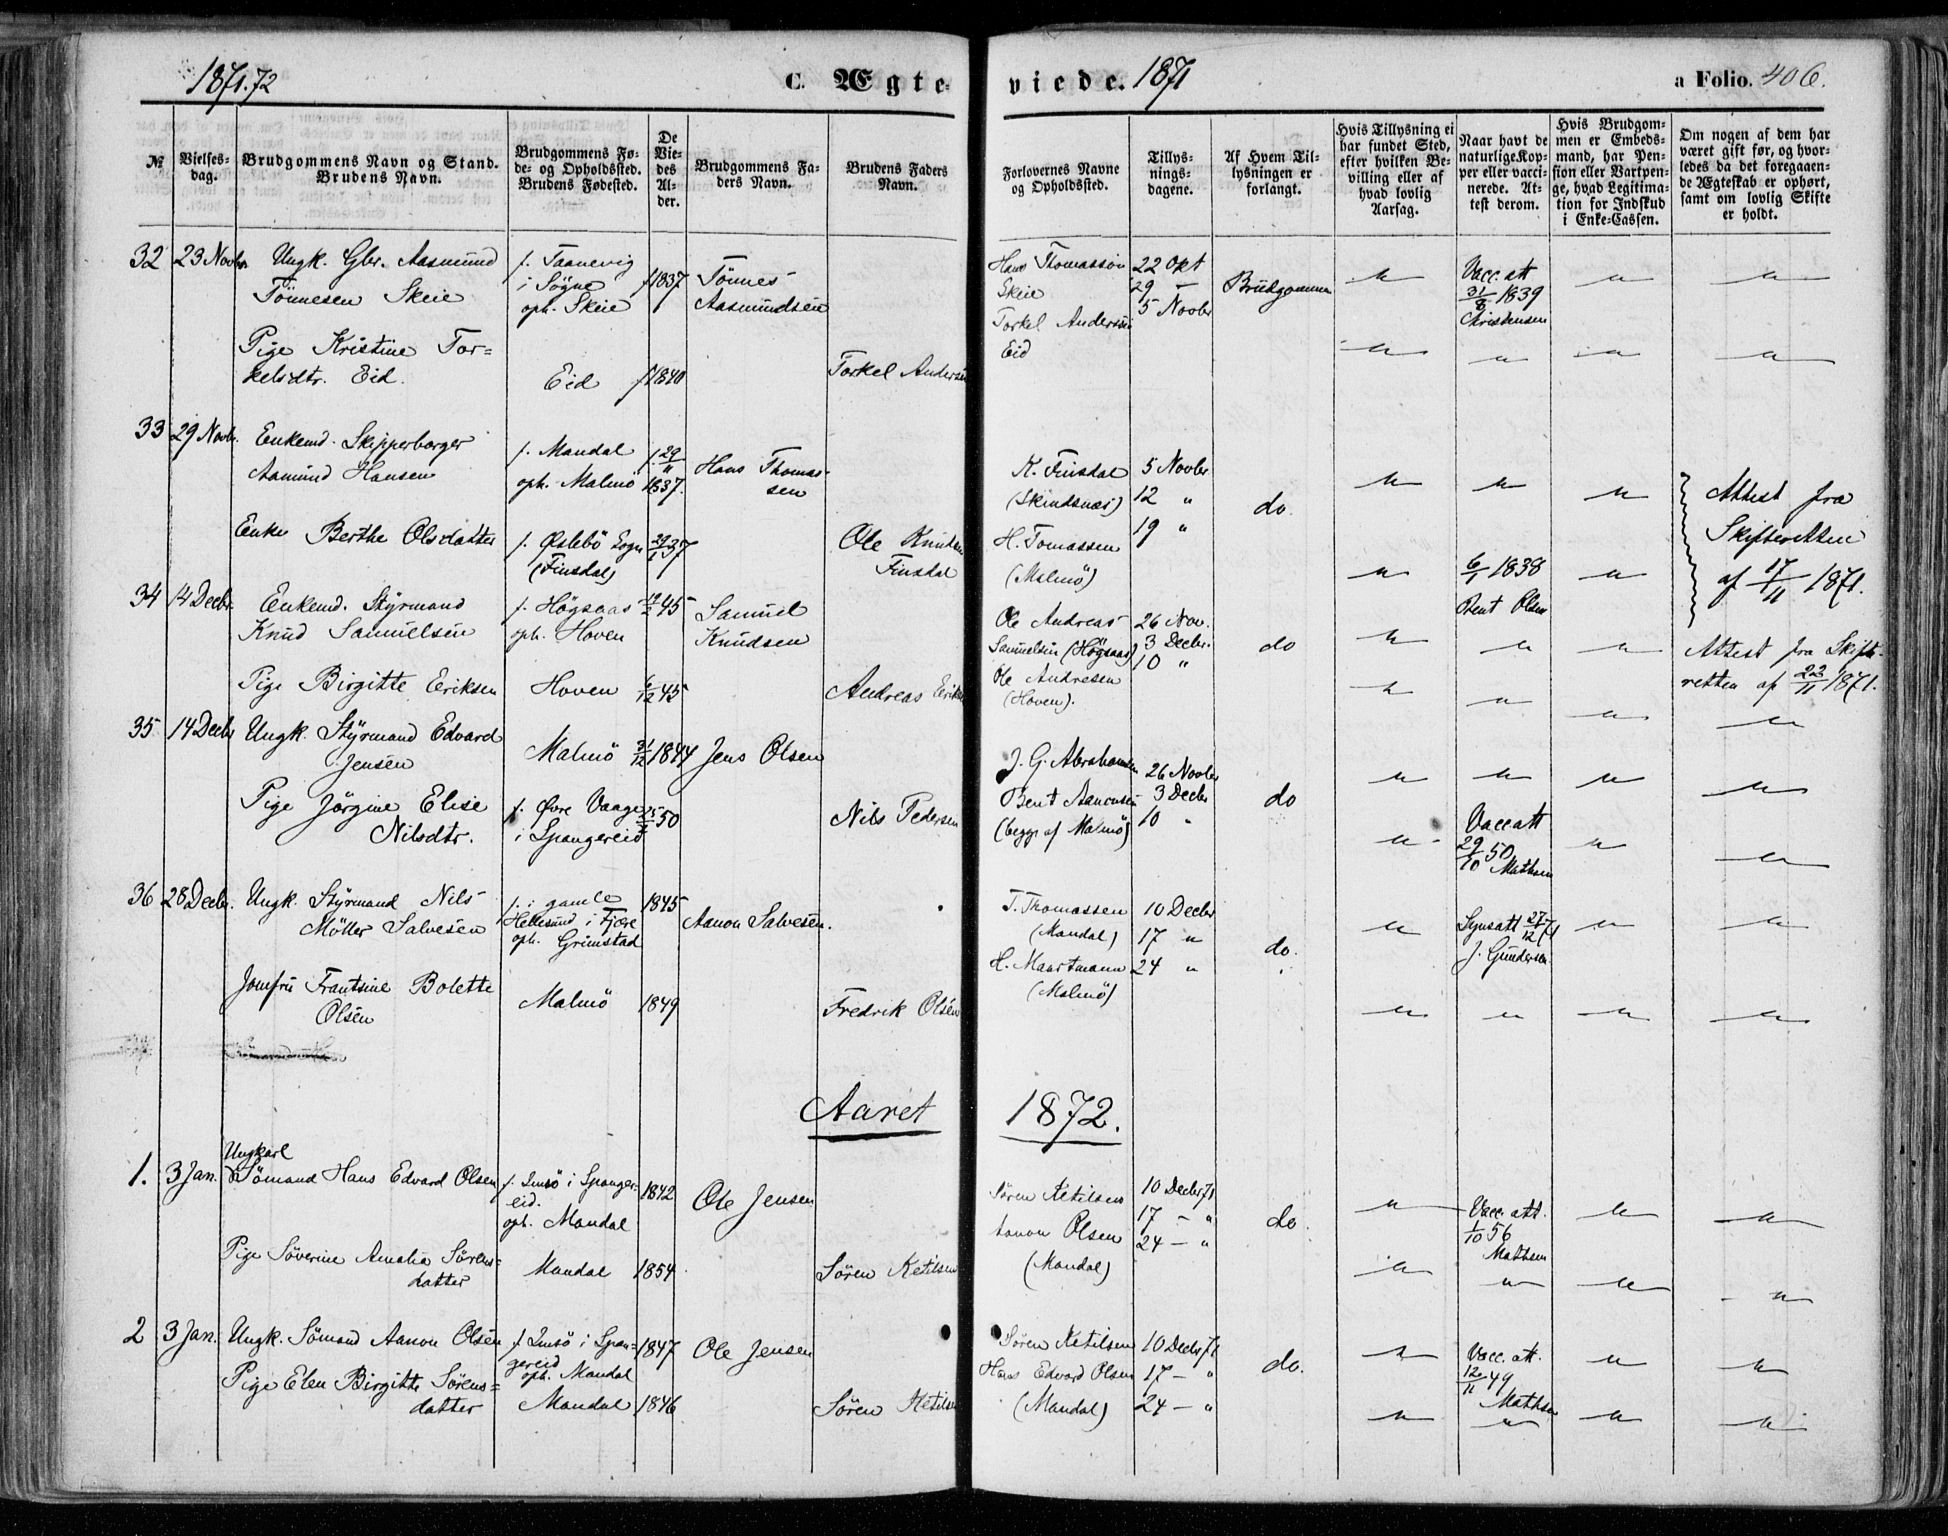 1871.72
C. Ægte-
viede. 1871
a Folio. 406.
№
Vielses-
dag.
Brudgommens Navn og Stand.
Brudens Navn.
Brudgommens Fø-
de- og Opholdssted.
Brudens Fødested.
De
Vie-
des
Al-
der.
Brudgommens Fa-
ders Navn.
Brudens Faders
Navn.
Forlovernes Navne
og Opholdssted.
Tillys-
nings-
dagene.
Af Hvem Til-
lysningen er
forlangt.
Hvis Tillysning ei
har fundet Sted,
efter hvilken Be-
villing eller af
hvad lovlig
Aarsag.
Naar havt de
naturlige Kop-
per eller vacci-
nerede. At-
test derom.
Hvis Brudgom-
men er Embeds-
mand, har Pen-
sion eller Vartpen-
ge, hvad Legitima-
tion for Indskud
i Enke-Cassen.
Om nogen af dem har
været gift før, og hvor-
ledes da det foregaaen-
de Ægteskab er ophørt,
samt om lovlig Skifte
er holdt.
32 23 Novbr. Ungk. Gbr. Aasmund
Tönnesen Skeie
f. Taanevig
i Sögne
oph. Skeie
f 1837
Tönnes
Aasmundsen
Hans Thomassen
Skeie
Torkel Andersen
Eid
22 Okt
29 —
5 Novbr
Brudgommen
Vacc. att
31/8 1839
Christensen
Pige Kristine Tor=
kelsdtr. Eid.
Eid
f 1840
Torkel Andersen
33 29 Novbr. Enkemd. Skipperborger
Aamund Hansen
f. Mandal
oph. Malmö
1837.
Hans Thomas-
sen
K. Finsdal
(Skindsnæs)
H. Tomassen
(Malmö)
5 Novbr
12 "
19 "
do.
Attest fra
Skifteretten
af 17/11 1871.
Enke Berthe Olsdatter
f. Øslebö Sogn
(Finsdal)
29/1 37
Ole Knudsen
Finsdal
6/1 1838
Bent Olsen
34 14 Decbr. Enkemd. Styrmand
Knud Samuelsen
f. Högsaas
oph. Hoven
45
Samuel
Knudsen
Ole Andreas
Samuelsen (Högsaas)
Ole Andresen
(Hoven).
26 Nov.
3 Decbr.
10 "
do
Attest fra Skift-
retten af 22/11 1871.
Pige Birgitte Eriksen
Hoven
6/12 45
Andreas Eriks
35 14 Decbr Ungk. Styrmand Edvard
Jensen
Malmö
31/12 1844
Jens Olsen
J. G. Abrahamsen
Bent Aanensen
(begge af Malmö)
26 Novbr
3 Decbr
10 "
do
Pige Jörgine Elise
Nilsdtr.
f. Øvre Vaage
i Spangereid
50
Nils Pedersen
Vacc att
29/10 50
Mathsen
36 28 Decbr. Ungk. Styrmand Nils
Möller Salvesen
f. i gamle
Hellesund i Fjære
oph. Grimstad
1845
Aanon Salvesen.
T. Thomassen
(Mandal)
H. Maartmann
(Malmö)
10 Decbr
17 "
24 "
do.
Synsatt 27/12 71
J. Gundersen
Jomfru Frantsine Bolette
Olsen
Malmö
1849
Fredrik Olsen
Aaret 1872.
1. 3 Jan. Ungkarl
Sömand Hans Edvard Olsen
f. Imsö i Spanger-
eid.
oph. Mandal
1842
Ole Jensen
Sören Ketilsen
Aanon Olsen
(Mandal)
10 Decbr 71
17 — "
24 — "
do.
Vacc. att.
1/10 56
Mathsen
Pige Söverine Amalia Sörens-
datter
Mandal
1854
Sören Ketilsen
2 3 Jan. Ungk. Sömand Aanon Olsen
f. Imsö i Span-
gereid
oph. Mandal
1847
Ole Jensen
Sören Ketilsen
Hans Edvard Olsen
(Mandal)
10 Decbr 71
17 — "
24 — "
do.
Vacc. att.
12/11 49
Mathsen
Pige Elen Birgitte Sörens=
datter
Mandal
1846
Sören Ketilsen